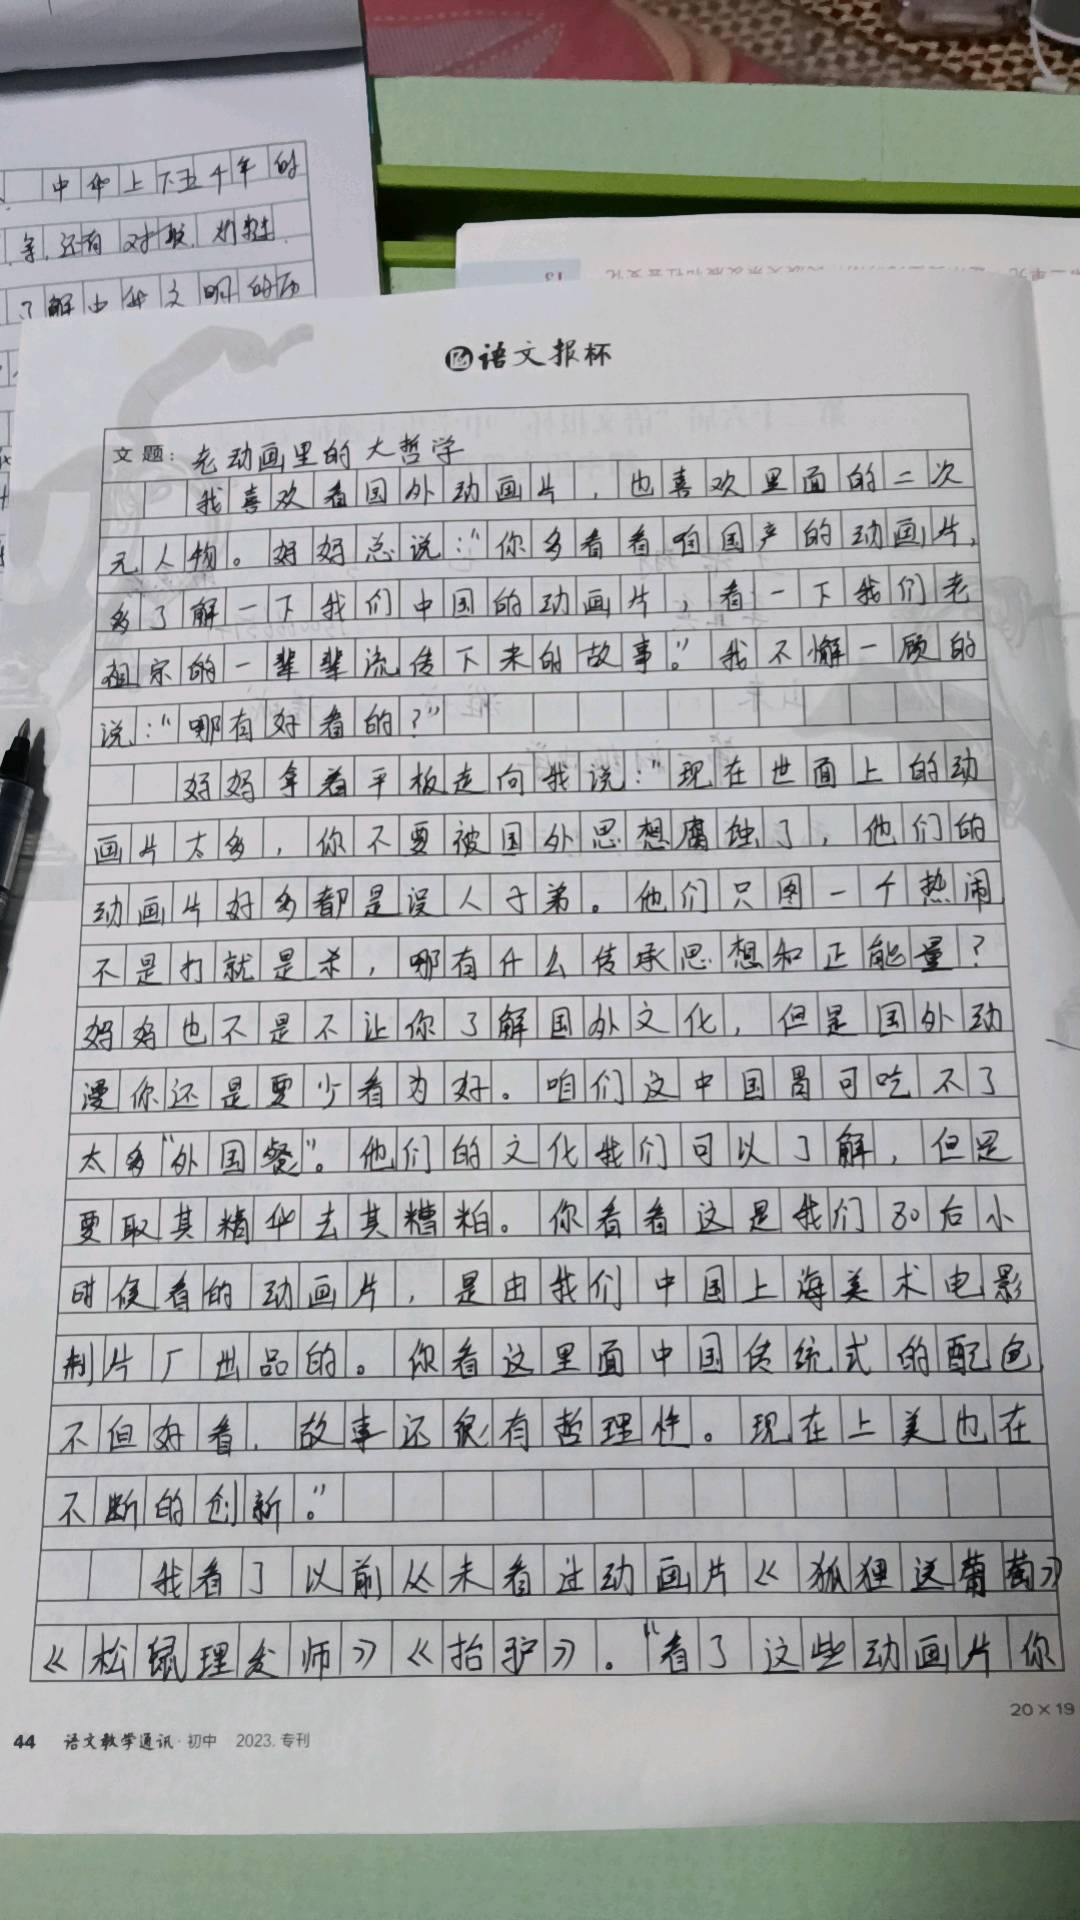 中华上下五千年的
等.还有对联.
了解中华文明的历
语文报杯
文题:老动画里的大哲学
我喜欢看国外动画片,也喜欢里面的二次
元人物。妈妈总说:“你多看看咱国产的动画片,
多了解一下我们中国的动画片,看一下我们老
祖宗的一辈辈流传下来的故事。”我不懈一顾的
说:“哪有好看的?”
妈妈拿着平板走向我说:“现在世面上的动
画片太多,你不要被国外思想腐蚀了,他们的
动画片好多都是误人子弟。他们只图一个热闹
不是打就是杀,哪有什么传承思想和正能量?
妈妈也不是不让你了解国外文化,但是国外动
漫你还是要少看为好。咱们这中国胃可吃不了
太多“外国餐”。他们的文化我们可以了解,但是
要取其精华去其糟粕。你看看这是我们80后小
时候看的动画片,是由我们中国上海美术电影
制片厂出品的。你看这里面中国传统式的配色
不但好看,故事还很有哲理性。现在上美也在
不断的创新。”
我看了以前从未看过动画片《狐狸送葡萄》
《松鼠理发师》《抬驴》。“看了这些动画片你
20×19
44 语文教学通讯·初中 2023.专刊